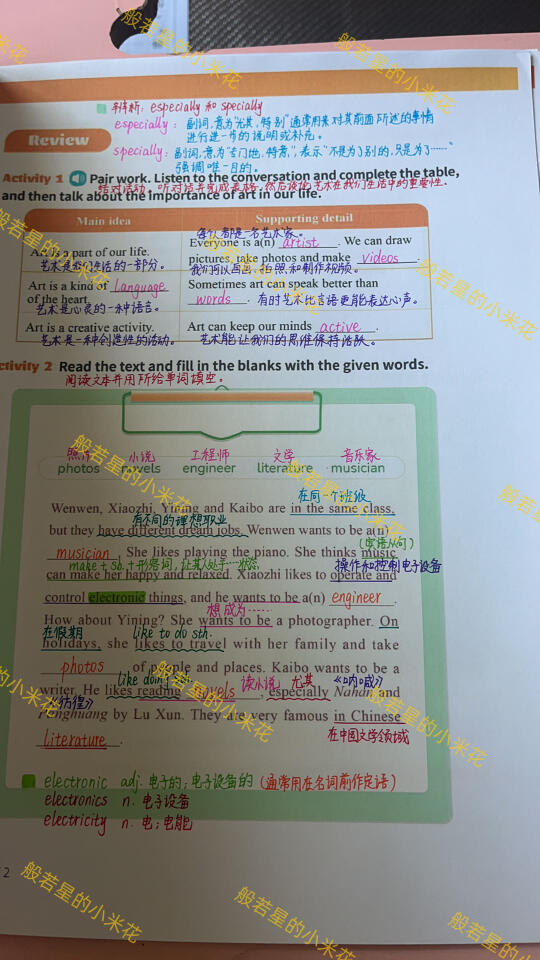 辨析: especially 和 specially
especially: 副词,意为"尤其,特别"通常用来对其前面所述的事情
进行进一步的说明或补充。
specially: 副词,意为"专门地,特意",表示"不是为了别的,只是为了……"
强调唯一目的。
Review
Activity 1 Pair work. Listen to the conversation and complete the table,
结对活动。听对话并完成表格,然后谈论艺术在我们生活中的重要性。
and then talk about the importance of art in our life.
Main idea Supporting detail
每个人都是一名艺术家。
Art is a part of our life. Everyone is a(n) artist. We can draw
pictures, take photos and make videos.
艺术是我们生活的一部分。 我们可以画画、拍照和制作视频。
Art is a kind of language Sometimes art can speak better than
of the heart. words. 有时艺术比言语更能表达心声。
艺术是心灵的一种语言。
Art is a creative activity. Art can keep our minds active.
艺术是一种创造性的活动。 艺术能让我们的思维保持活跃。
ctivity 2 Read the text and fill in the blanks with the given words.
阅读文本并用所给单词填空。
照片 小说 工程师 文学 音乐家
photos novels engineer literature musician
在同一个班级
Wenwen, Xiaozhi, Yining and Kaibo are in the same class,
有不同的理想职业
but they have different dream jobs. Wenwen wants to be a(n)
(宾语从句)
musician. She likes playing the piano. She thinks music
make + sb. + 形容词,让某人处于…状态 操作和控制电子设备
can make her happy and relaxed. Xiaozhi likes to operate and
control electronic things, and he wants to be a(n) engineer.
想成为……
How about Yining? She wants to be a photographer. On
在假期 like to do sth.
holidays, she likes to travel with her family and take
photos of people and places. Kaibo wants to be a
like doing sth. 读小说 尤其 《呐喊》
writer. He likes reading novels, especially Nahan and
《彷徨》
Panghuang by Lu Xun. They are very famous in Chinese
literature. 在中国文学领域
electronic adj. 电子的;电子设备的(通常用在名词前作定语)
electronics n. 电子设备
electricity n. 电;电能
2
般若星的小米花
般若星的小米花
般若星的小米花
般若星的小米花
般若星的小米花
般若星的小米花
般若星的小米花
般若星的小米花
般若星的小米花
般若星的小米花
般若星的小米花
般若星的小米花